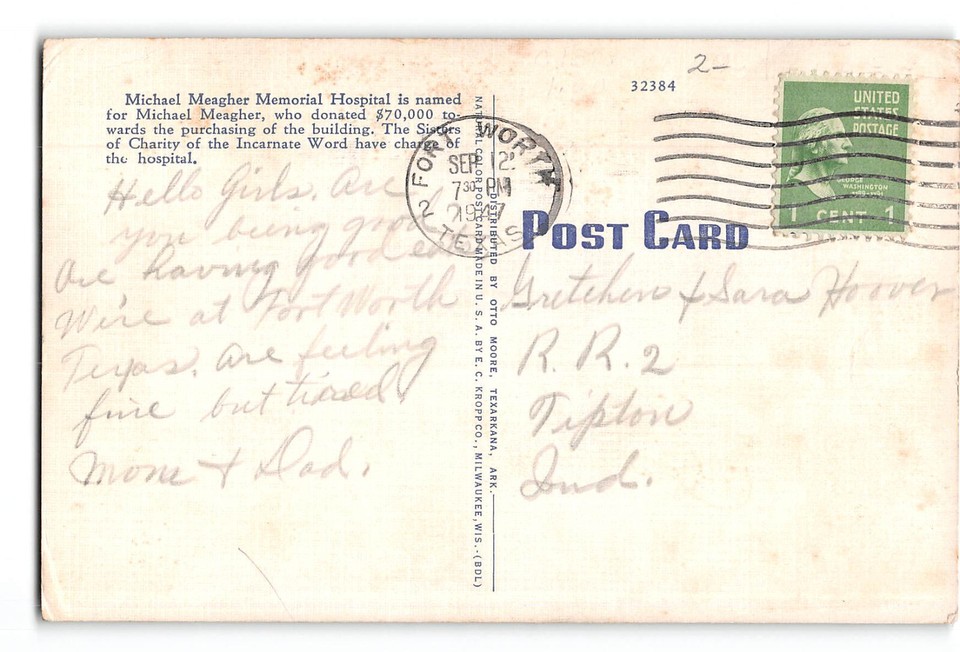 2-
32384
UNITED
STATES
POSTAGE
GEORGE
WASHINGTON
1 CENT 1
Michael Meagher Memorial Hospital is named
for Michael Meagher, who donated $70,000 to-
wards the purchasing of the building. The Sisters
of Charity of the Incarnate Word have charge of
the hospital.
FORT WORTH
SEP 12
7 30 PM
1947
2 TEXAS
Hello Girls. Are
you being good
are having good
We're at Fort Worth
Texas. are feeling
fine but tired
Mom + Dad.
NATURAL COLOR POST CARD MADE IN U. S. A. BY E. C. KROPP CO., MILWAUKEE, WIS.-(BDL)
DISTRIBUTED BY OTTO MOORE, TEXARKANA, ARK.
POST CARD
Gretchen & Sara Hoover
R. R. 2
Tipton
Ind.